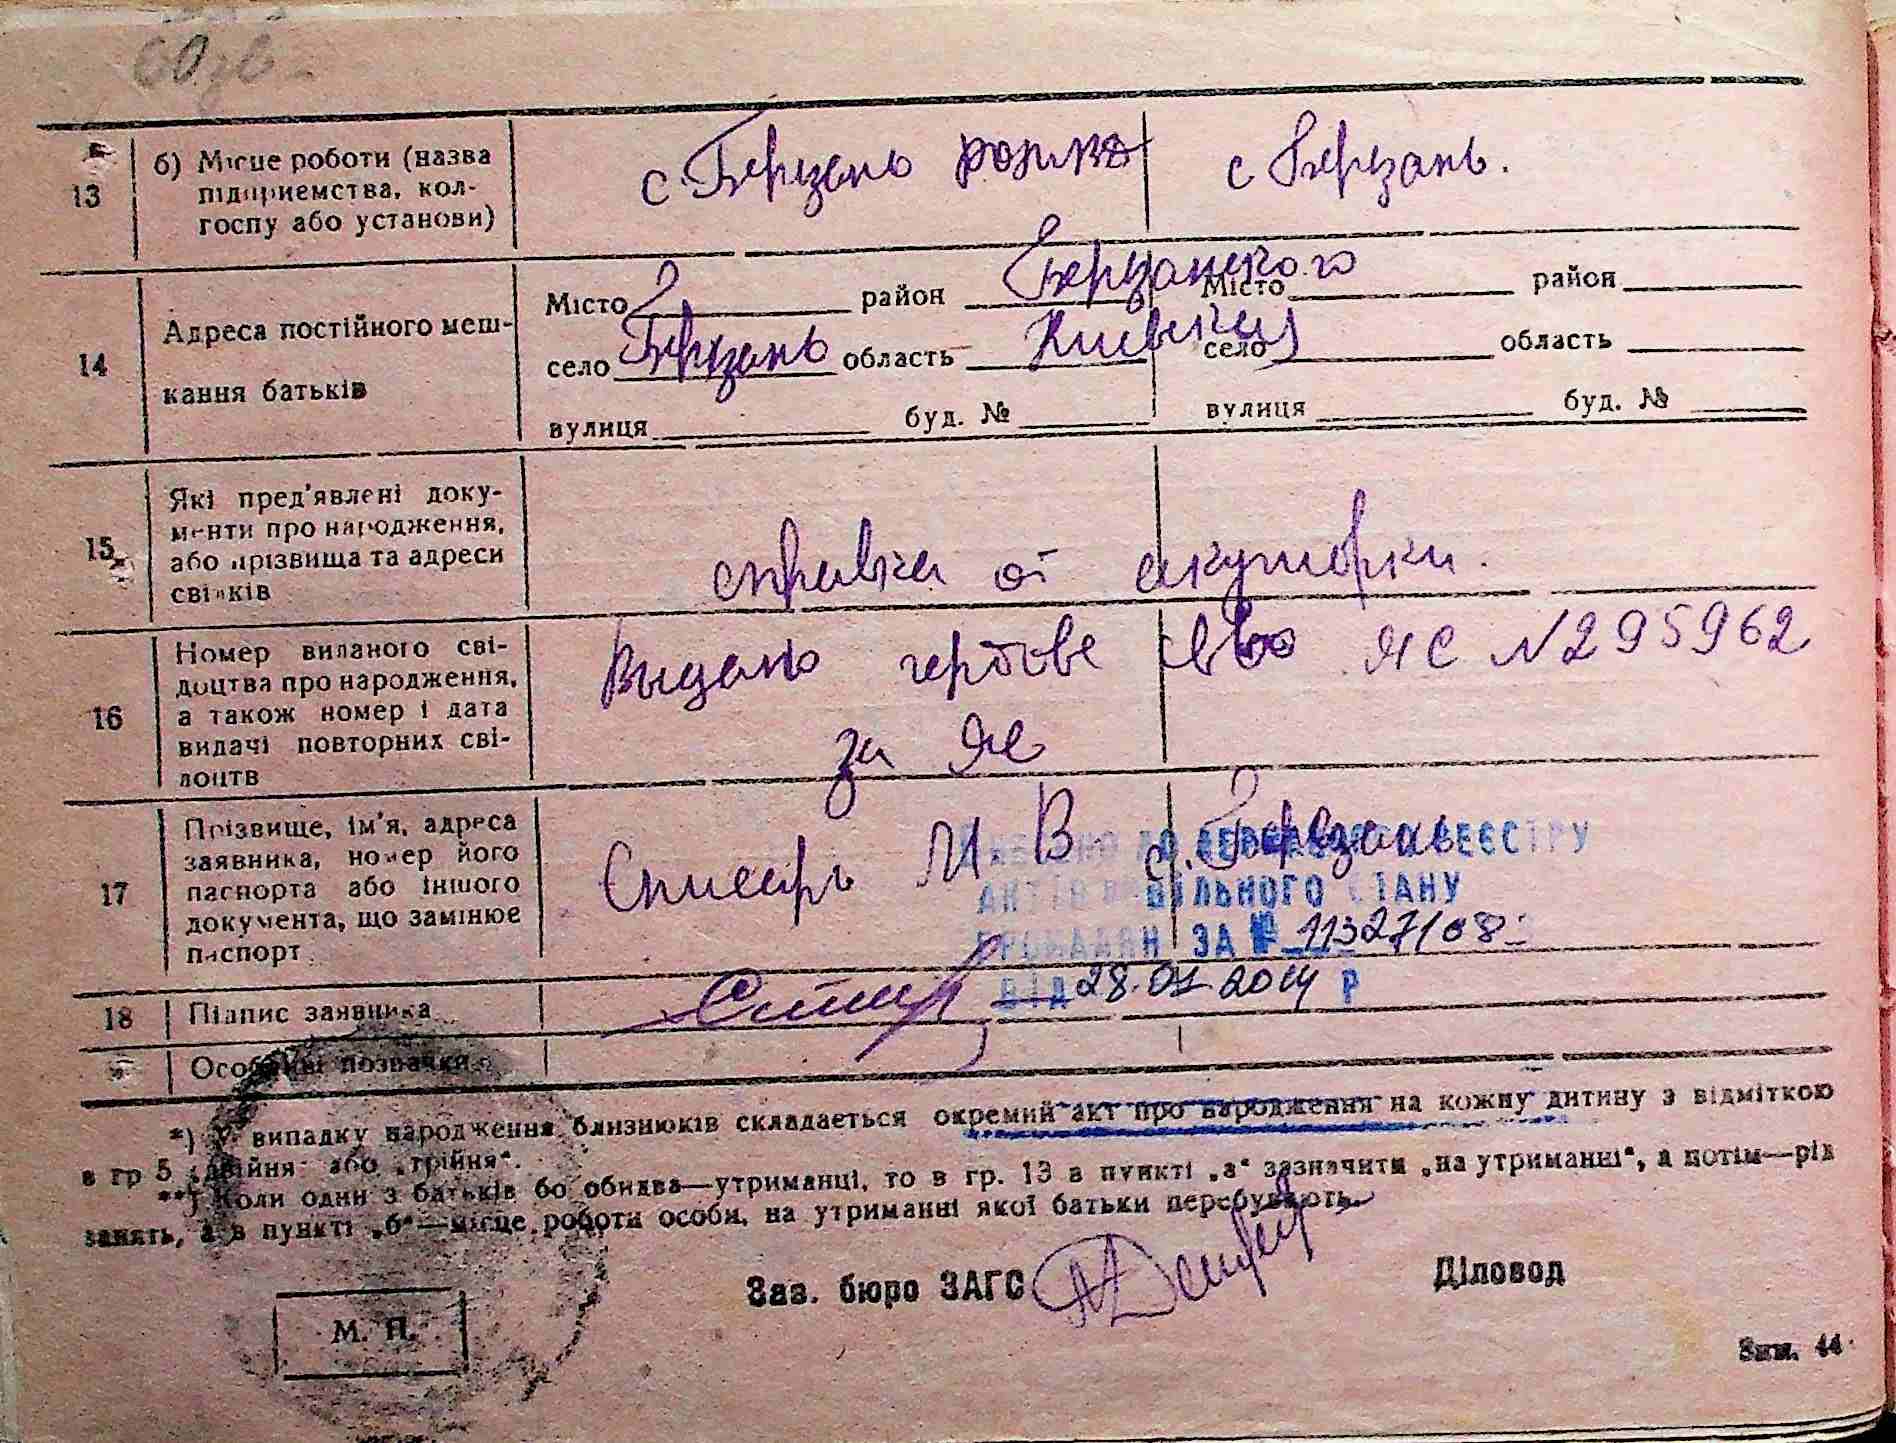 60 зв.
13 б) Місце роботи (назва
підприємства, кол-
госпу або установи)
с. Березань с Березань.
14 Адреса постійного меш-
кання батьків
Місто район Березанского Місто район
село Березань область Киевская село область
вулиця буд. № вулиця буд. №
15 Які пред'явлені доку-
менти про народження,
або прізвища та адреси
свідків
справка от акушорки.
16 Номер виданого сві-
доцтва про народження,
а також номер і дата
видачі повторних сві-
доцтв
Выдано гербове св-во ЯС №295962
за
17 Прізвище, ім'я, адреса
заявника, номер його
паспорта або іншого
документа, що замінює
паспорт
М. В. с. Березань
ДО ДЕРЖАВНОГО РЕЄСТРУ
АКТІВ ЦИВІЛЬНОГО СТАНУ
ГРОМАДЯН ЗА № 11327108
ВІД 28.01.2014 Р
18 Підпис заявника
Особливі позначки
*) У випадку народження близнюків складається окремий акт про народження на кожну дитину з відміткою
в гр 5 „двійня“ або „трійня“.
**) Коли один з батьків бо обидва—утриманці, то в гр. 13 в пункті „а“ зазначити „на утриманні“, а потім—рід
занять, а в пункті „б“—місце роботи особи, на утриманні якої батьки перебувають.
Зав. бюро ЗАГС Діловод
М. П.
Зам. 44